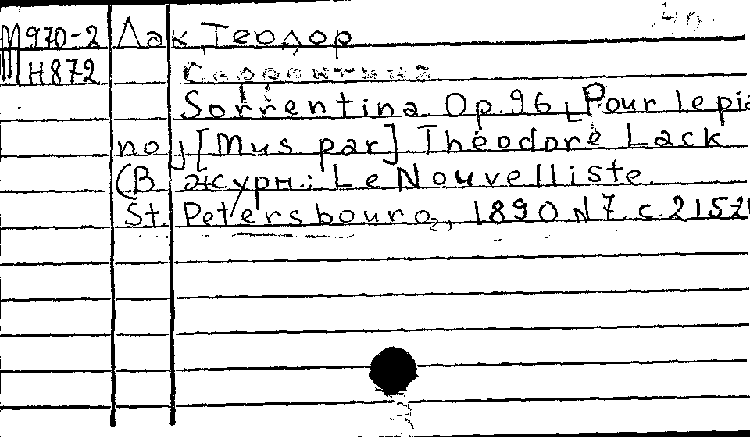 М970-2 Лак, Теодор 4п.
Н872 Соррентина
Sorrentina Op. 96 [Pour le pia
no] [Mus par] Théodore Lack
(В журн.: Le Nouvelliste.
St. Petersbourg, 1890 N7 с.